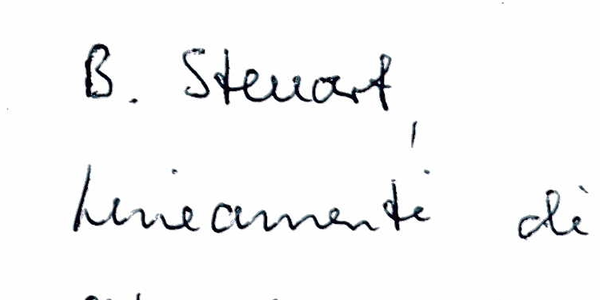 B. Steuart,
Lineamenti di